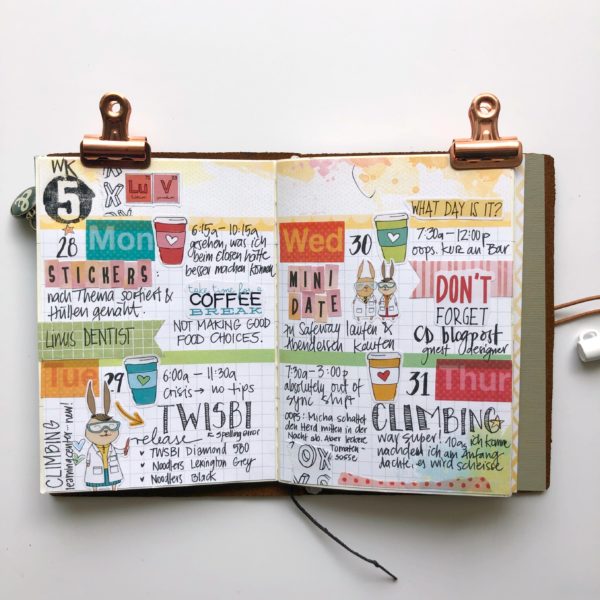 WK
5
Lu V
28 Mon
6:15a - 10:15a
gesehen, was ich
beim Eloxen hätte
besser machen können
STICKERS:
nach Thema sortiert &
Hüllen genäht.
take time for a
COFFEE
BREAK
NOT MAKING GOOD
FOOD CHOICES.
Linus DENTIST
Tue 29
6:00a - 11:30a
Crisis → no tips
TWISBI
↖ spelling error
release
TWSBI Diamond 580
Noodlers Lexington Grey
Noodlers Black
CLIMBING
learning center - new!
WHAT DAY IS IT?
Wed 30
7:30a - 12:00p
oops. kurz an Bar
MINI
DATE
zu Safeway laufen &
Abendessen kaufen
DON'T
FORGET
CD blogpost
guest designer
7:30a - 3:00p
absolutely out of
sync shift
OOPS: Micha schaltet
den Herd mitten in der
Nacht ab. Aber leckere
Tomaten-
sosse
31 Thur
CLIMBING
war super! 10a, ich kann
nachdem ich am Anfang
dachte, es wird scheisse